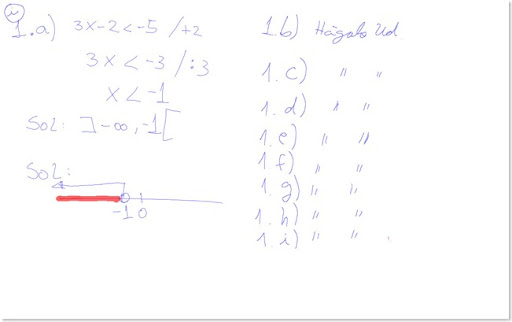 1.a) 3x-2<-5 /+2
3x < -3 /:3
x < -1
SOL: ]-∞, -1[
SOL:
-1 0
1.b) Hágalo Ud
1.c) " "
1.d) " "
1.e) " "
1.f) " "
1.g) " "
1.h) " "
1.i) " "